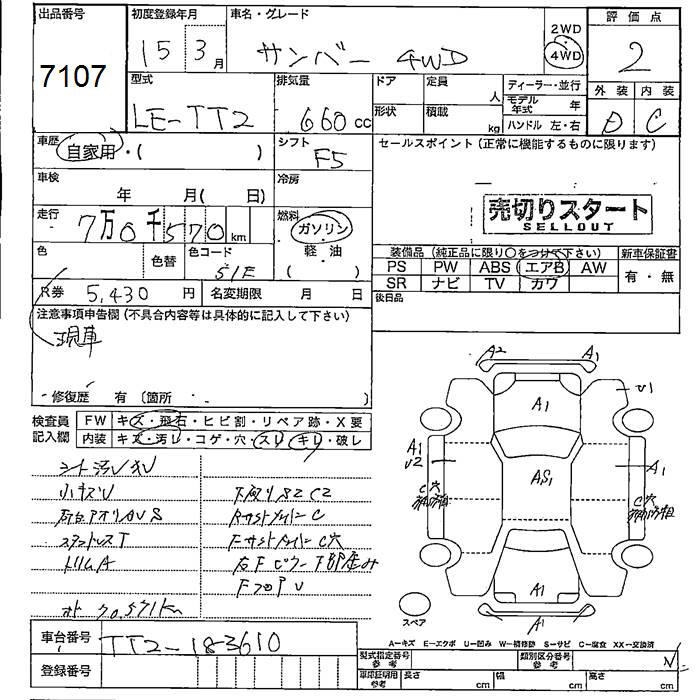 出品番号
7107
初度登録年月
15年 3月
車名・グレード
サンバー 4WD
2WD
4WD
評価点
2
外装 内装
D C
型式
LE-TT2
排気量
660 cc
ドア
形状
定員 人
積載 kg
ディーラー・並行
モデル年式 年
ハンドル 左・右
車歴
自家用・( )
シフト
F5
セールスポイント (正常に機能するものに限ります)
売切りスタート
SELLOUT
車検
年 月( 日)
冷房
走行
7万0千570 km
燃料
ガソリン
軽・油
( )
色
色替
色コード
51E
装備品 (純正品に限り〇をつけて下さい)
PS PW ABS エアB AW
SR ナビ TV カワ
新車保証書
有・無
R券 5,430 円
名変期限 月 日
後日品
注意事項申告欄 (不具合内容等は具体的に記入して下さい)
現車
・修復歴 有 〔箇所 〕
検査員記入欄
FW キズ・飛石・ヒビ割・リペア跡・X要
内装 キズ・汚レ・コゲ・穴・スレ・キレ・破レ
小キズU
トリムA
下廻りS2 C2
Rサイドメンバー C
Fサイドメンバー C穴
右Fピラー下部歪み
FフロアU
A2 A1
U1
A1
A1
U2
AS1
A1
C穴
C穴
A1
A1
スペア
A-キズ E-エクボ U-凹み W-補修跡 S-サビ C-腐食 XX-交換済
車台番号
TT2-183610
登録番号
型式指定番号 参考
類別区分番号 参考
N
車庫証明用 参考
長さ cm
幅 cm
高さ cm